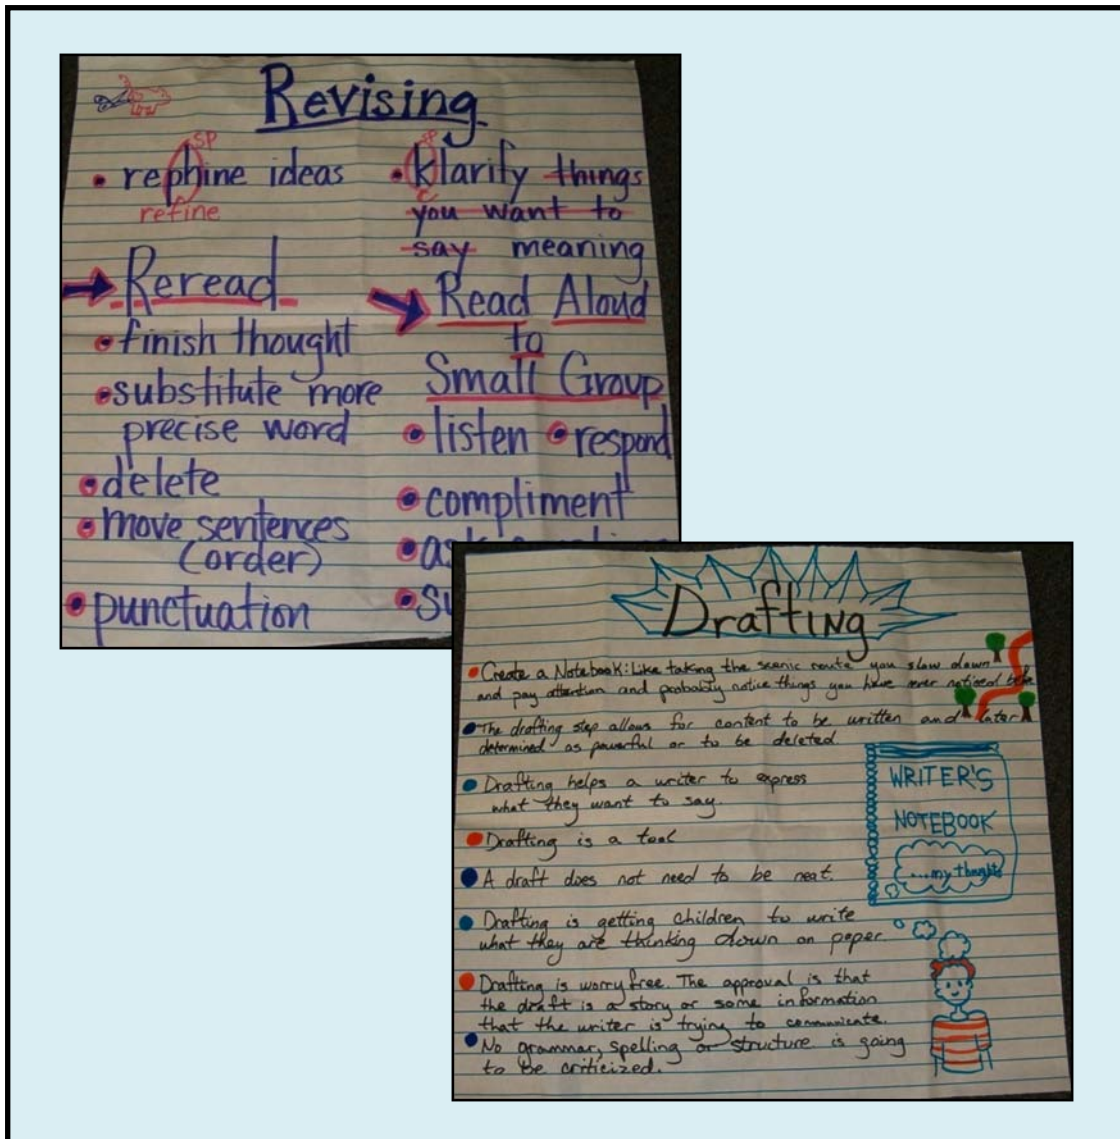 Revising
• rephine ideas
sp
refine
Reread
• finish thought
• substitute more
precise word
• delete
• move sentences
(order)
• punctuation
sp
• klarify things
c
you want to
say meaning
Read Aloud
to
Small Group
• listen • respond
• compliment
Drafting
• Create a Notebook: Like taking the scenic route you slow down
and pay attention and probably notice things you have never noticed before
• The drafting step allows for content to be written and later
determined as powerful or to be deleted.
• Drafting helps a writer to express
what they want to say.
• Drafting is a tool
• A draft does not need to be neat.
• Drafting is getting children to write
what they are thinking down on paper.
• Drafting is worry free. The approval is that
the draft is a story or some information
that the writer is trying to communicate.
• No grammar, spelling or structure is going
to be criticized.
WRITER'S
NOTEBOOK
...my thoughts